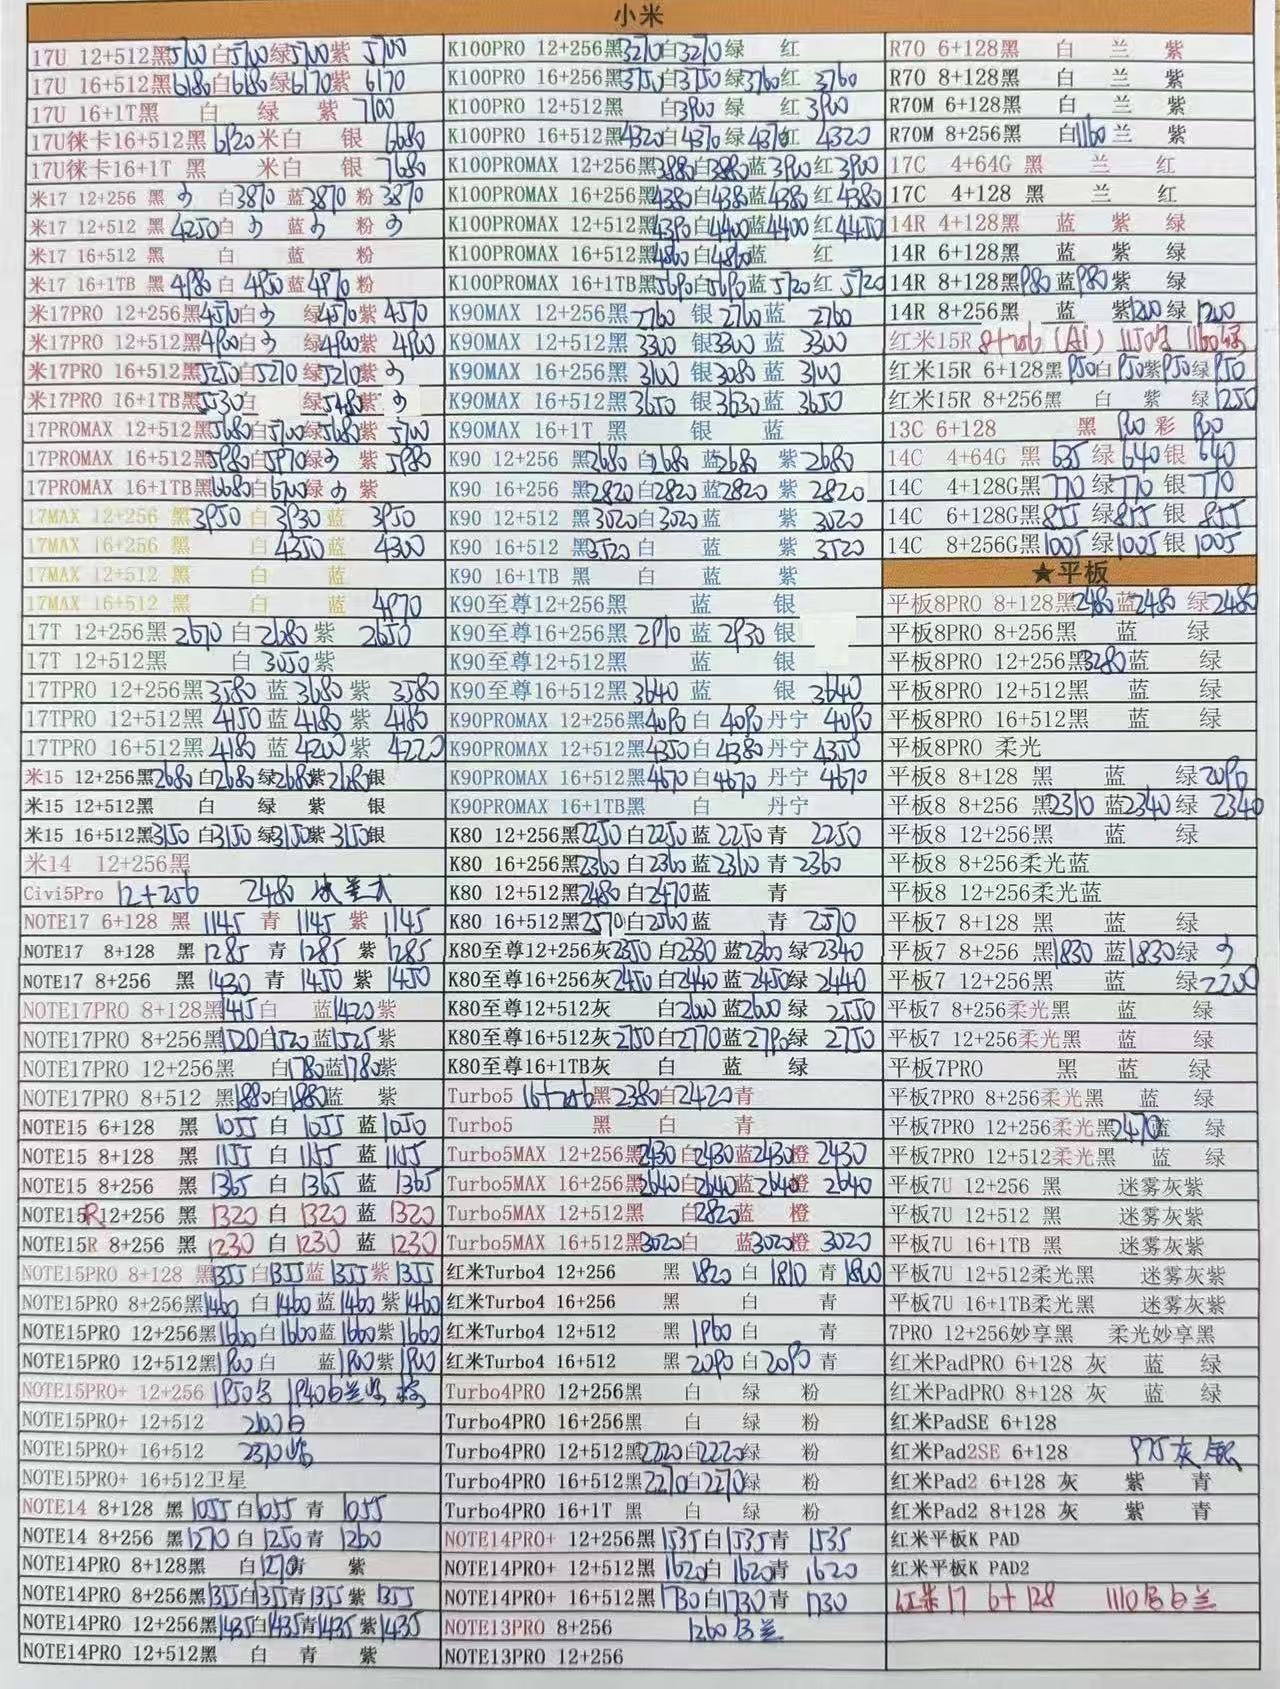 小米
17U 12+512黑5700白5700绿5700紫 5700
17U 16+512黑6180白6180绿6170紫 6170
17U 16+1T黑 白 绿 紫 7100
17U徕卡16+512黑 6920米白 银 6680
17U徕卡16+1T 黑 米白 银 7680
米17 12+256 黑 白3870 蓝3870 粉3870
米17 12+512 黑 4250白 蓝 粉
米17 16+512 黑 白 蓝 粉
米17 16+1TB 黑 4980 白 4950 蓝4970 粉
米17PRO 12+256黑4570白 绿4570紫 4570
米17PRO 12+512黑4900白 绿4900紫 4900
米17PRO 16+512黑5250白5210 绿5210紫
米17PRO 16+1TB黑5530白 绿5480紫
17PROMAX 12+512黑5680白5700绿5685紫 5700
17PROMAX 16+512黑5980白5970绿 紫 5980
17PROMAX 16+1TB黑6680白6700绿 紫
17MAX 12+256 黑 3950 白 3930 蓝 3950
17MAX 16+256 黑 白4350蓝 4300
17MAX 12+512 黑 白 蓝
17MAX 16+512 黑 白 蓝 4970
17T 12+256黑 2670 白2680紫 2650
17T 12+512黑 白 3050紫
17TPRO 12+256黑3580 蓝 3680 紫 3580
17TPRO 12+512黑 4150 蓝 4180 紫 4180
17TPRO 16+512黑 4180 蓝 4200 紫 4220
米15 12+256黑2680白2680绿2680紫2680银
米15 12+512黑 白 绿 紫 银
米15 16+512黑3150 白3150绿3150紫3150银
米14 12+256黑
Civi5Pro 12+256 2480
NOTE17 6+128 黑 1145 青 1145 紫 1145
NOTE17 8+128 黑 1285 青 1285 紫 1285
NOTE17 8+256 黑 1430 青 1450 紫 1450
NOTE17PRO 8+128黑1415白 蓝1420紫
NOTE17PRO 8+256黑1520白1520蓝1525紫
NOTE17PRO 12+256黑 白1780蓝1780紫
NOTE17PRO 8+512 黑1880白1880蓝 紫
NOTE15 6+128 黑 1055 白 1055 蓝1050
NOTE15 8+128 黑 1155 白 1155 蓝 1155
NOTE15 8+256 黑 1365 白 1365 蓝 1365
NOTE15R12+256 黑 1320 白 1320 蓝 1320
NOTE15R 8+256 黑 1230 白 1230 蓝 1230
NOTE15PRO 8+128 黑1355白1355蓝1355紫1355
NOTE15PRO 8+256黑1460 白1460蓝1460紫1460
NOTE15PRO 12+256黑1660白1660蓝1660紫1660
NOTE15PRO 12+512黑1900白 蓝1900紫1900
NOTE15PRO+ 12+256 1950 1940白兰
NOTE15PRO+ 12+512 2100白
NOTE15PRO+ 16+512 2370
NOTE15PRO+ 16+512卫星
NOTE14 8+128 黑 1055白1055 青 1055
NOTE14 8+256 黑1270 白 1250青 1260
NOTE14PRO 8+128黑 白1270青 紫
NOTE14PRO 8+256黑1355白1355青1355紫 1355
NOTE14PRO 12+256黑1435白1435青1435紫1435
NOTE14PRO 12+512黑 白 青 紫
K100PRO 12+256黑3270白3270绿 红
K100PRO 16+256黑3750白3750绿3760红 3760
K100PRO 12+512黑 白3900绿 红3900
K100PRO 16+512黑4320白4370绿4370红 4320
K100PROMAX 12+256黑3880白3880蓝3900红3900
K100PROMAX 16+256黑4380白4380蓝4380红4380
K100PROMAX 12+512黑4390白4400蓝4400红4450
K100PROMAX 16+512黑4860白4860蓝 红
K100PROMAX 16+1TB黑5690白5690蓝5720红 5720
K90MAX 12+256黑 2760 银2760蓝 2760
K90MAX 12+512黑 3300 银3300 蓝 3300
K90MAX 16+256黑 3100 银3080 蓝 3100
K90MAX 16+512黑 3650 银3630 蓝 3650
K90MAX 16+1T 黑 银 蓝
K90 12+256 黑2680 白2680 蓝2680 紫 2680
K90 16+256 黑2820白2820蓝2820 紫 2820
K90 12+512 黑3020白3020蓝 紫 3020
K90 16+512 黑3520白 蓝 紫 3520
K90 16+1TB 黑 白 蓝 紫
K90至尊12+256黑 蓝 银
K90至尊16+256黑 2910 蓝 2930 银
K90至尊12+512黑 蓝 银
K90至尊16+512黑3640 蓝 银 3640
K90PROMAX 12+256黑4090白 4090丹宁 4090
K90PROMAX 12+512黑4350白 4380丹宁 4350
K90PROMAX 16+512黑4670白4670 丹宁 4670
K90PROMAX 16+1TB黑 白 丹宁
K80 12+256黑2250 白2250 蓝 2250 青 2250
K80 16+256黑2360 白2360 蓝2360 青 2360
K80 12+512黑2480 白2470蓝 青
K80 16+512黑2570白2560蓝 青 2570
K80至尊12+256灰2350 白2330 蓝2360 绿2340
K80至尊16+256灰2450白2440 蓝2450绿2440
K80至尊12+512灰 白2600 蓝2600绿 2550
K80至尊16+512灰2750白2770蓝2790绿 2750
K80至尊16+1TB灰 白 蓝 绿
Turbo5 16+256黑2380白2420青
Turbo5 黑 白 青
Turbo5MAX 12+256黑2430白2430蓝2430橙 2430
Turbo5MAX 16+256黑2640白2640蓝2640橙 2640
Turbo5MAX 12+512黑 白2820蓝 橙
Turbo5MAX 16+512黑3020白 蓝3020橙 3020
红米Turbo4 12+256 黑 1820 白 1810 青1800
红米Turbo4 16+256 黑 白 青
红米Turbo4 12+512 黑 1960 白 青
红米Turbo4 16+512 黑 2090 白2090 青
Turbo4PRO 12+256黑 白 绿 粉
Turbo4PRO 16+256黑 白 绿 粉
Turbo4PRO 12+512黑2220白2220绿 粉
Turbo4PRO 16+512黑2270白2270绿 粉
Turbo4PRO 16+1T 黑 白 绿 粉
NOTE14PRO+ 12+256黑1535白1535青 1535
NOTE14PRO+ 12+512黑1620白 1620青 1620
NOTE14PRO+ 16+512黑1730白1730青 1730
NOTE13PRO 8+256 1260 兰
NOTE13PRO 12+256
R70 6+128黑 白 兰 紫
R70 8+128黑 白 兰 紫
R70M 6+128黑 白 兰 紫
R70M 8+256黑 白1160兰 紫
17C 4+64G 黑 兰 红
17C 4+128 黑 兰 红
14R 4+128黑 蓝 紫 绿
14R 6+128黑 蓝 紫 绿
14R 8+128黑980蓝980紫 绿
14R 8+256黑 蓝 紫1200绿 1200
红米15R 8+256 (Ai) 1150 1160绿
红米15R 6+128黑 950白 950紫950绿 950
红米15R 8+256黑 白 紫 绿1250
13C 6+128 黑 800 彩 800
14C 4+64G 黑 635 绿 640银 640
14C 4+128G黑 770 绿770 银 770
14C 6+128G黑 855 绿855 银 855
14C 8+256G黑1005 绿1005银 1005
★平板
平板8PRO 8+128黑2480蓝2480 绿2480
平板8PRO 8+256黑 蓝 绿
平板8PRO 12+256黑3280蓝 绿
平板8PRO 12+512黑 蓝 绿
平板8PRO 16+512黑 蓝 绿
平板8PRO 柔光
平板8 8+128 黑 蓝 绿2090
平板8 8+256 黑2310 蓝2340绿 2340
平板8 12+256黑 蓝 绿
平板8 8+256柔光蓝
平板8 12+256柔光蓝
平板7 8+128 黑 蓝 绿
平板7 8+256 黑1830 蓝1830绿
平板7 12+256黑 蓝 绿2200
平板7 8+256柔光黑 蓝 绿
平板7 12+256柔光黑 蓝 绿
平板7PRO 黑 蓝 绿
平板7PRO 8+256柔光黑 蓝 绿
平板7PRO 12+256柔光黑2470蓝 绿
平板7PRO 12+512柔光黑 蓝 绿
平板7U 12+256 黑 迷雾灰紫
平板7U 12+512 黑 迷雾灰紫
平板7U 16+1TB 黑 迷雾灰紫
平板7U 12+512柔光黑 迷雾灰紫
平板7U 16+1TB柔光黑 迷雾灰紫
7PRO 12+256妙享黑 柔光妙享黑
红米PadPRO 6+128 灰 蓝 绿
红米PadPRO 8+128 灰 蓝 绿
红米PadSE 6+128
红米Pad2SE 6+128 975 灰 银
红米Pad2 6+128 灰 紫 青
红米Pad2 8+128 灰 紫 青
红米平板K PAD
红米平板K PAD2
红米17 6+128 1110 白兰